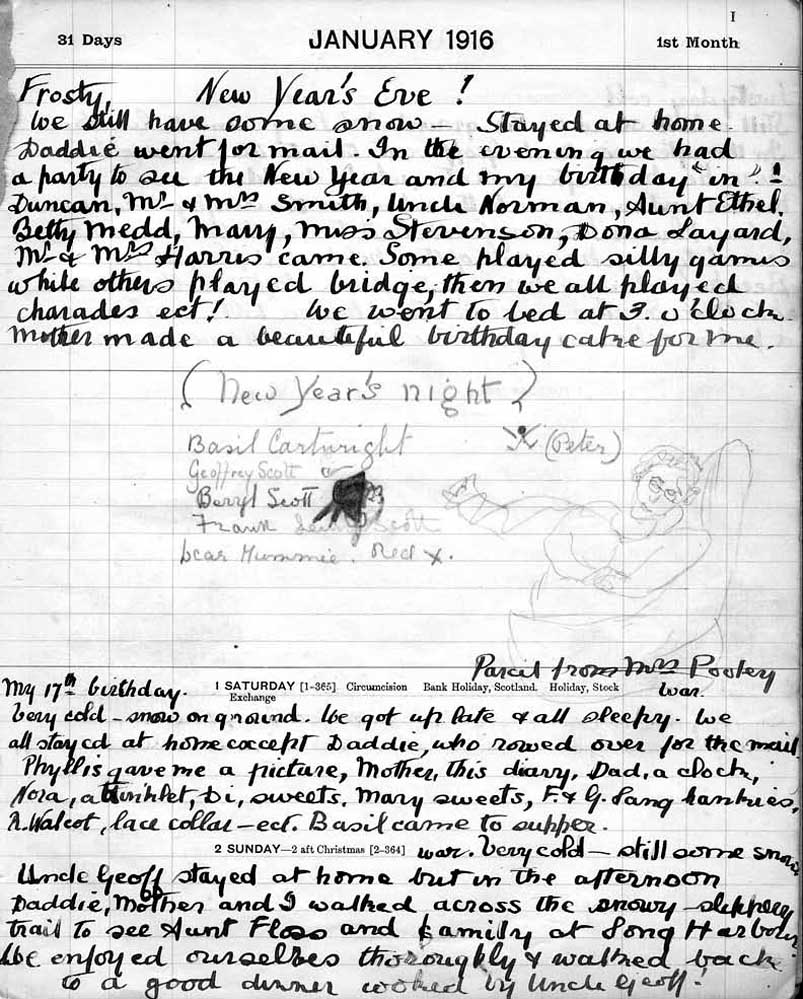 I
31 Days JANUARY 1916 1st Month
Frosty, New Year's Eve!
We still have some snow – Stayed at home.
Daddie went for mail. In the evening we had
a party to see the New Year and my birthday "in"!!
Duncan, Mr & Mrs Smith, Uncle Norman, Aunt Ethel,
Betty Medd, Mary, Miss Stevenson, Dona Layard,
Mr & Mrs Harris came. Some played silly games
while others played bridge, then we all played
charades ect! We went to bed at 3. o'clock.
Mother made a beautiful birthday cake for me.
(New Year's night)
Basil Cartwright X (Peter)
Geoffrey Scott
Beryl Scott
Frank Scott
Dear Mummie. Red x.
Parcel from Mrs Pooley
My 17th birthday. 1 SATURDAY [1-365] Circumcision Bank Holiday, Scotland. Holiday, Stock War.
Exchange
Very cold – snow on ground. We got up late & all sleepy. We
all stayed at home except Daddie, who rowed over for the mail.
Phyllis gave me a picture, Mother, this diary, Dad, a clock,
Nora, a trinklet, Di, sweets, Mary sweets, F. & G. Lang hankies,
R. Walcot, lace collar – ect. Basil came to supper.
2 SUNDAY—2 aft Christmas [2-364] War. Very cold – still some snow
Uncle Geoff stayed at home but in the afternoon
Daddie, Mother and I walked across the snowy – slippery
trail to see Aunt Floss and family at Long Harbour
We enjoyed ourselves thoroughly & walked back
to a good dinner cooked by Uncle Geoff!